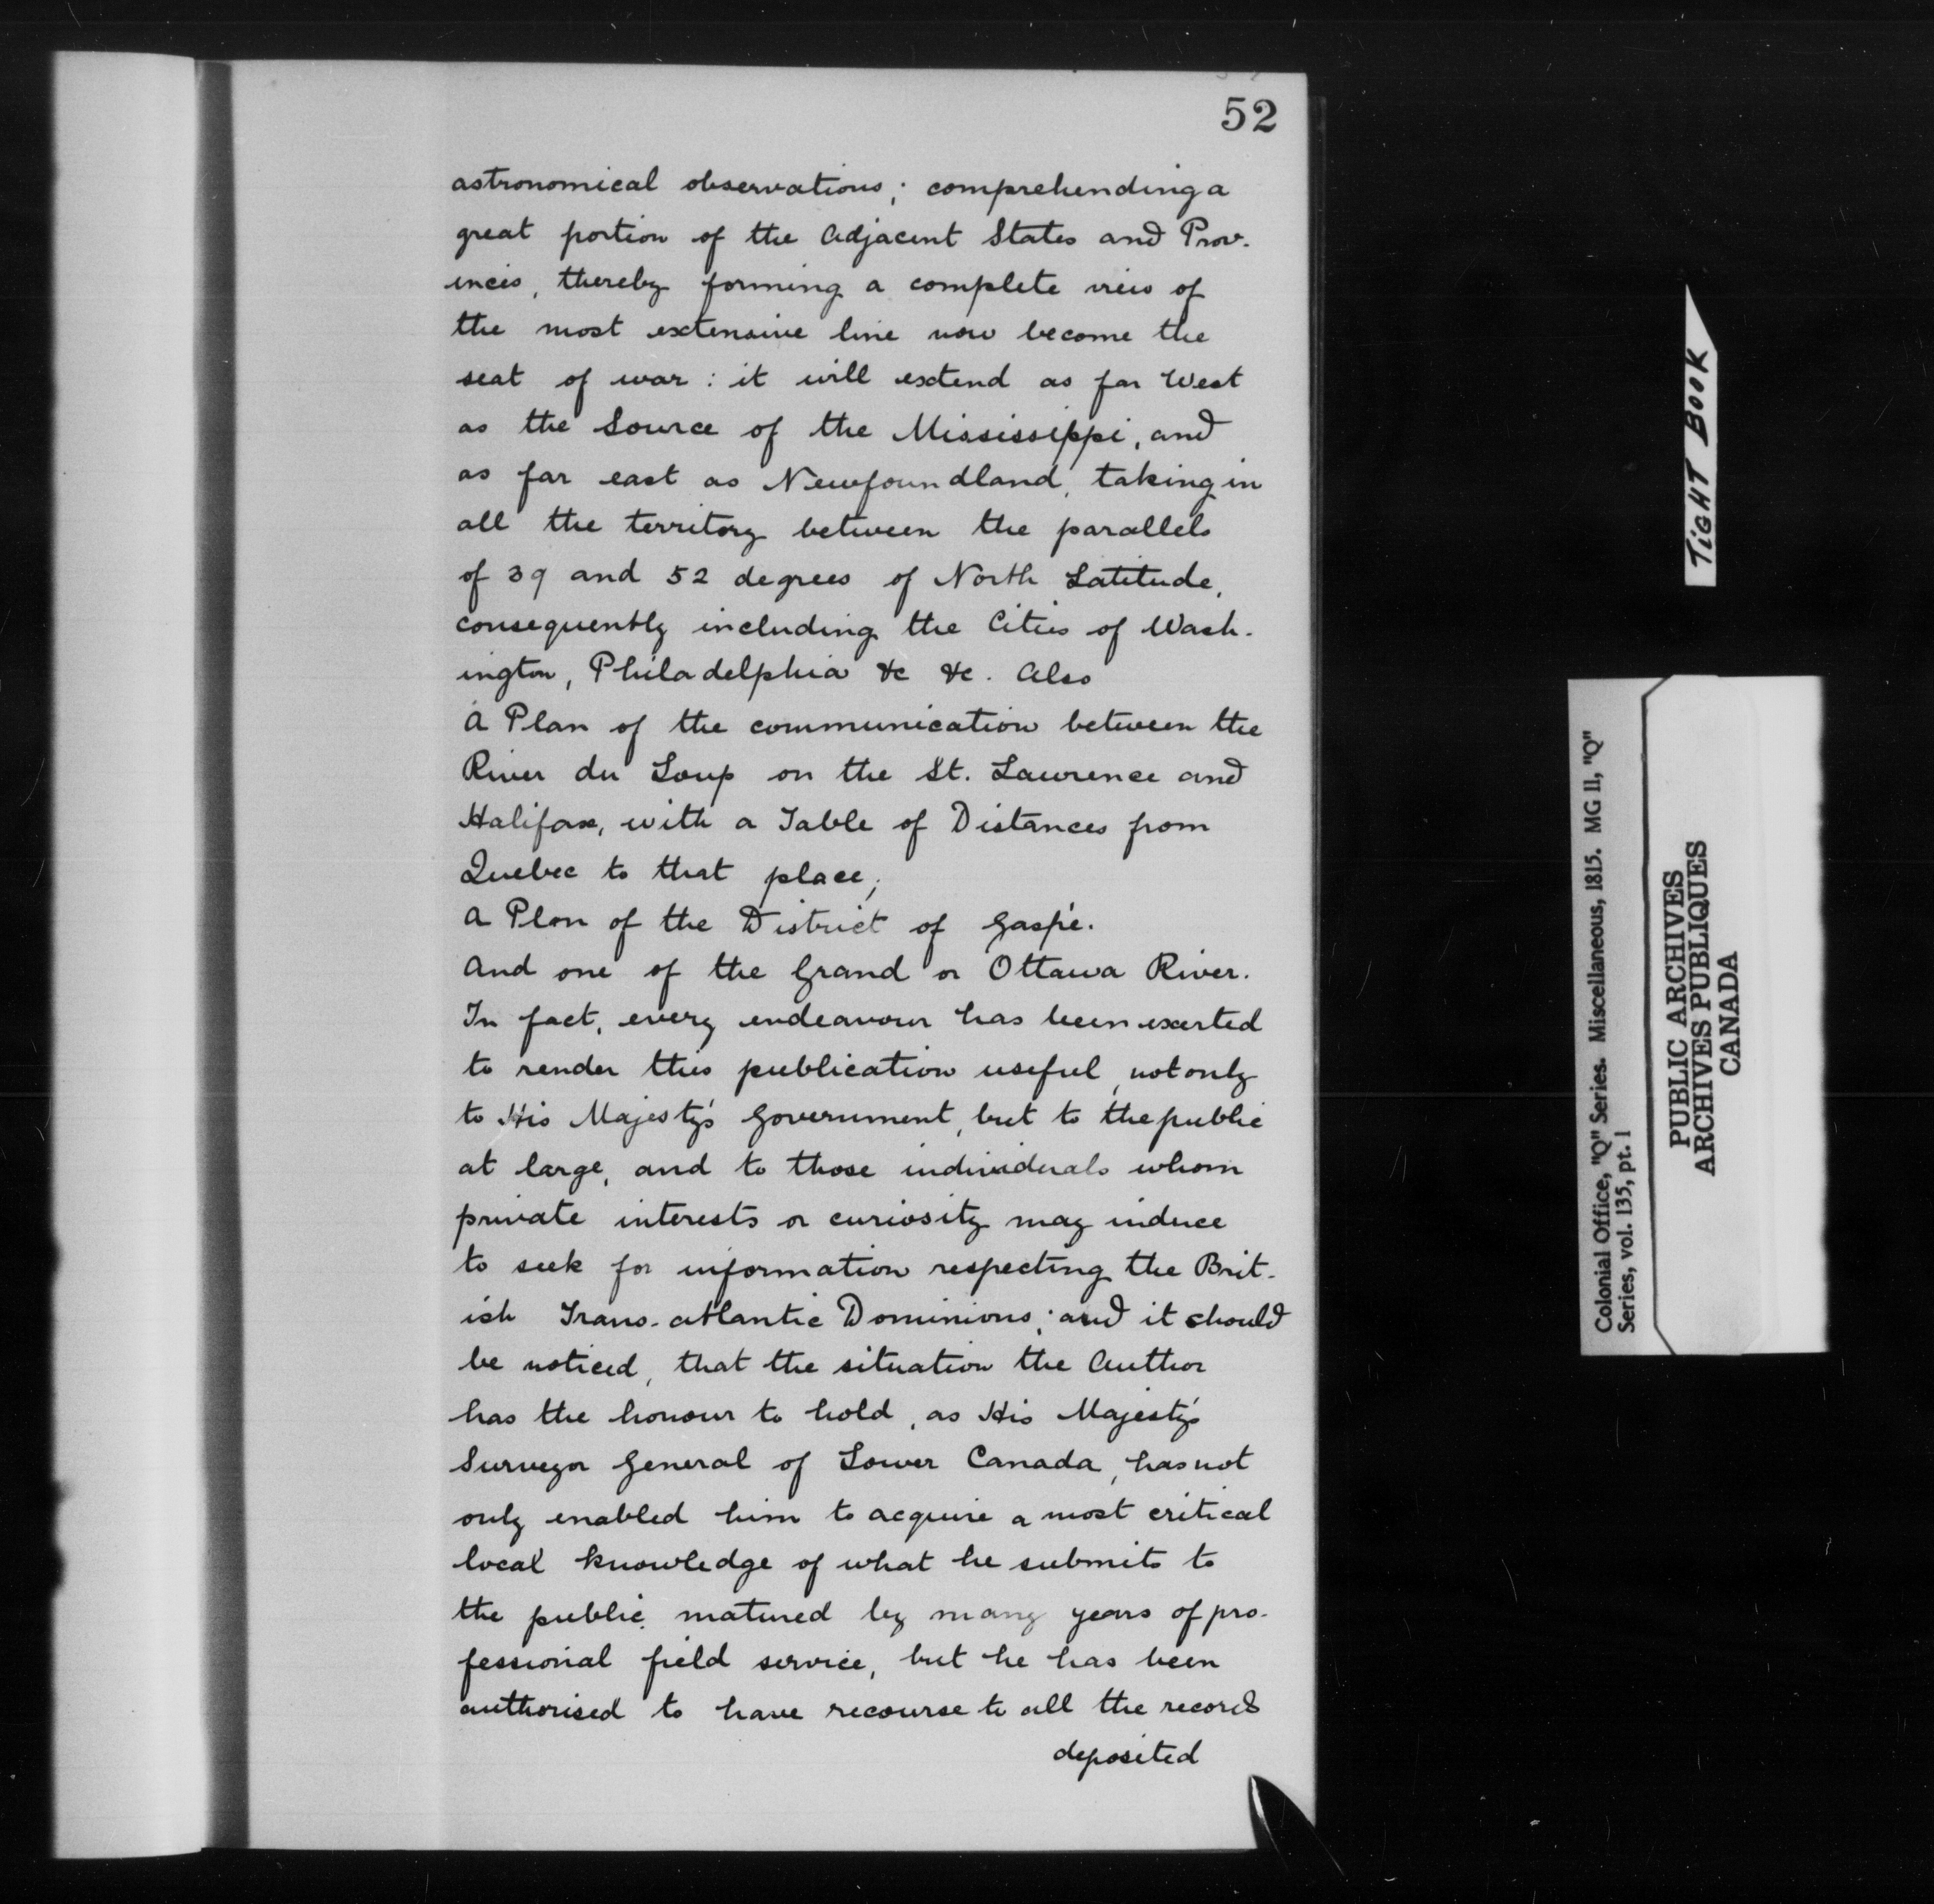 52
astronomical observations; comprehending a
great portion of the adjacent States and Prov-
inces, thereby forming a complete view of
the most extensive line now become the
seat of war: it will extend as far West
as the Source of the Mississippi, and
as far east as Newfoundland, taking in
all the territory between the parallels
of 39 and 52 degrees of North Latitude,
consequently including the Cities of Wash-
ington, Philadelphia &c &c. Also
A Plan of the communication between the
River du Loup on the St. Lawrence and
Halifax, with a Table of Distances from
Quebec to that place;
A Plan of the District of Gaspé.
And one of the Grand or Ottawa River.
In fact, every endeavour has been exerted
to render this publication useful, not only
to His Majesty's Government, but to the public
at large, and to those individuals whom
private interests or curiosity may induce
to seek for information respecting the Brit-
ish Trans-atlantic Dominions; and it should
be noticed, that the situation the Author
has the honour to hold, as His Majesty's
Surveyor General of Lower Canada, has not
only enabled him to acquire a most critical
local knowledge of what he submits to
the public, matured by many years of pro-
fessional field service, but he has been
authorised to have recourse to all the records
deposited
TIGHT BOOK
Colonial Office, "Q" Series. Miscellaneous, 1815. MG 11, "Q"
Series, vol. 135, pt. 1
PUBLIC ARCHIVES
ARCHIVES PUBLIQUES
CANADA